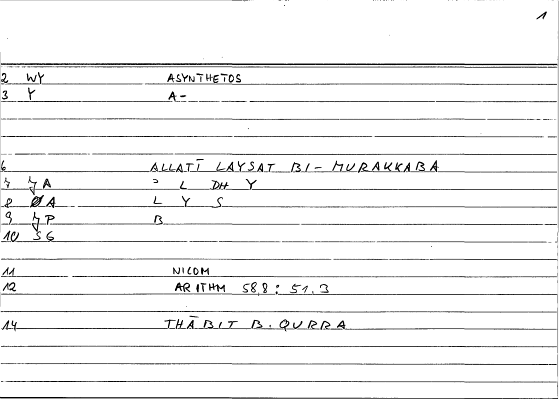 1
2 WY ASYNTHETOS
3 Y A-
6 ALLATĪ LAYSAT BI-MURAKKABA
7 A ʾ L DH Y
8 A L Y S
9 P B
10 SG
11 NICOM
12 ARITHM 58,8 : 51.3
14 THĀBIT B. QURRA